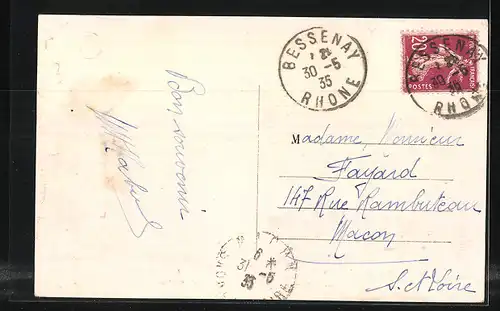 BESSENAY
30-5
35
RHONE
20
POSTES
BESSENAY
30
RHO
Bon souvenir
Madame, Monsieur
Fayard
147 Rue Rambuteau
Macon
S. et Loire
6 *
31 -5
35